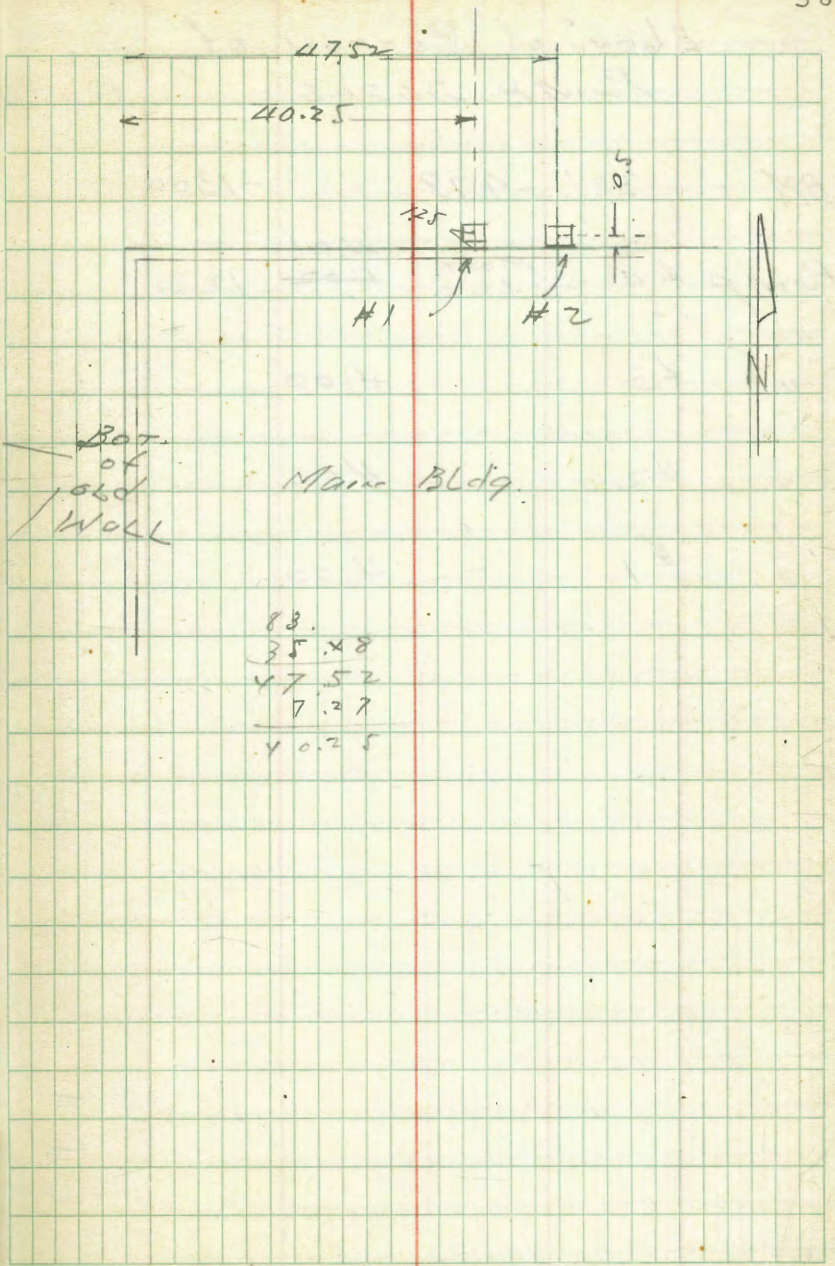 47.52
40.25
0.5
1.25
#1
#2
N
Bot.
of
old
Wall
Main Bldg.
83.
35.48
47.52
7.27
40.25